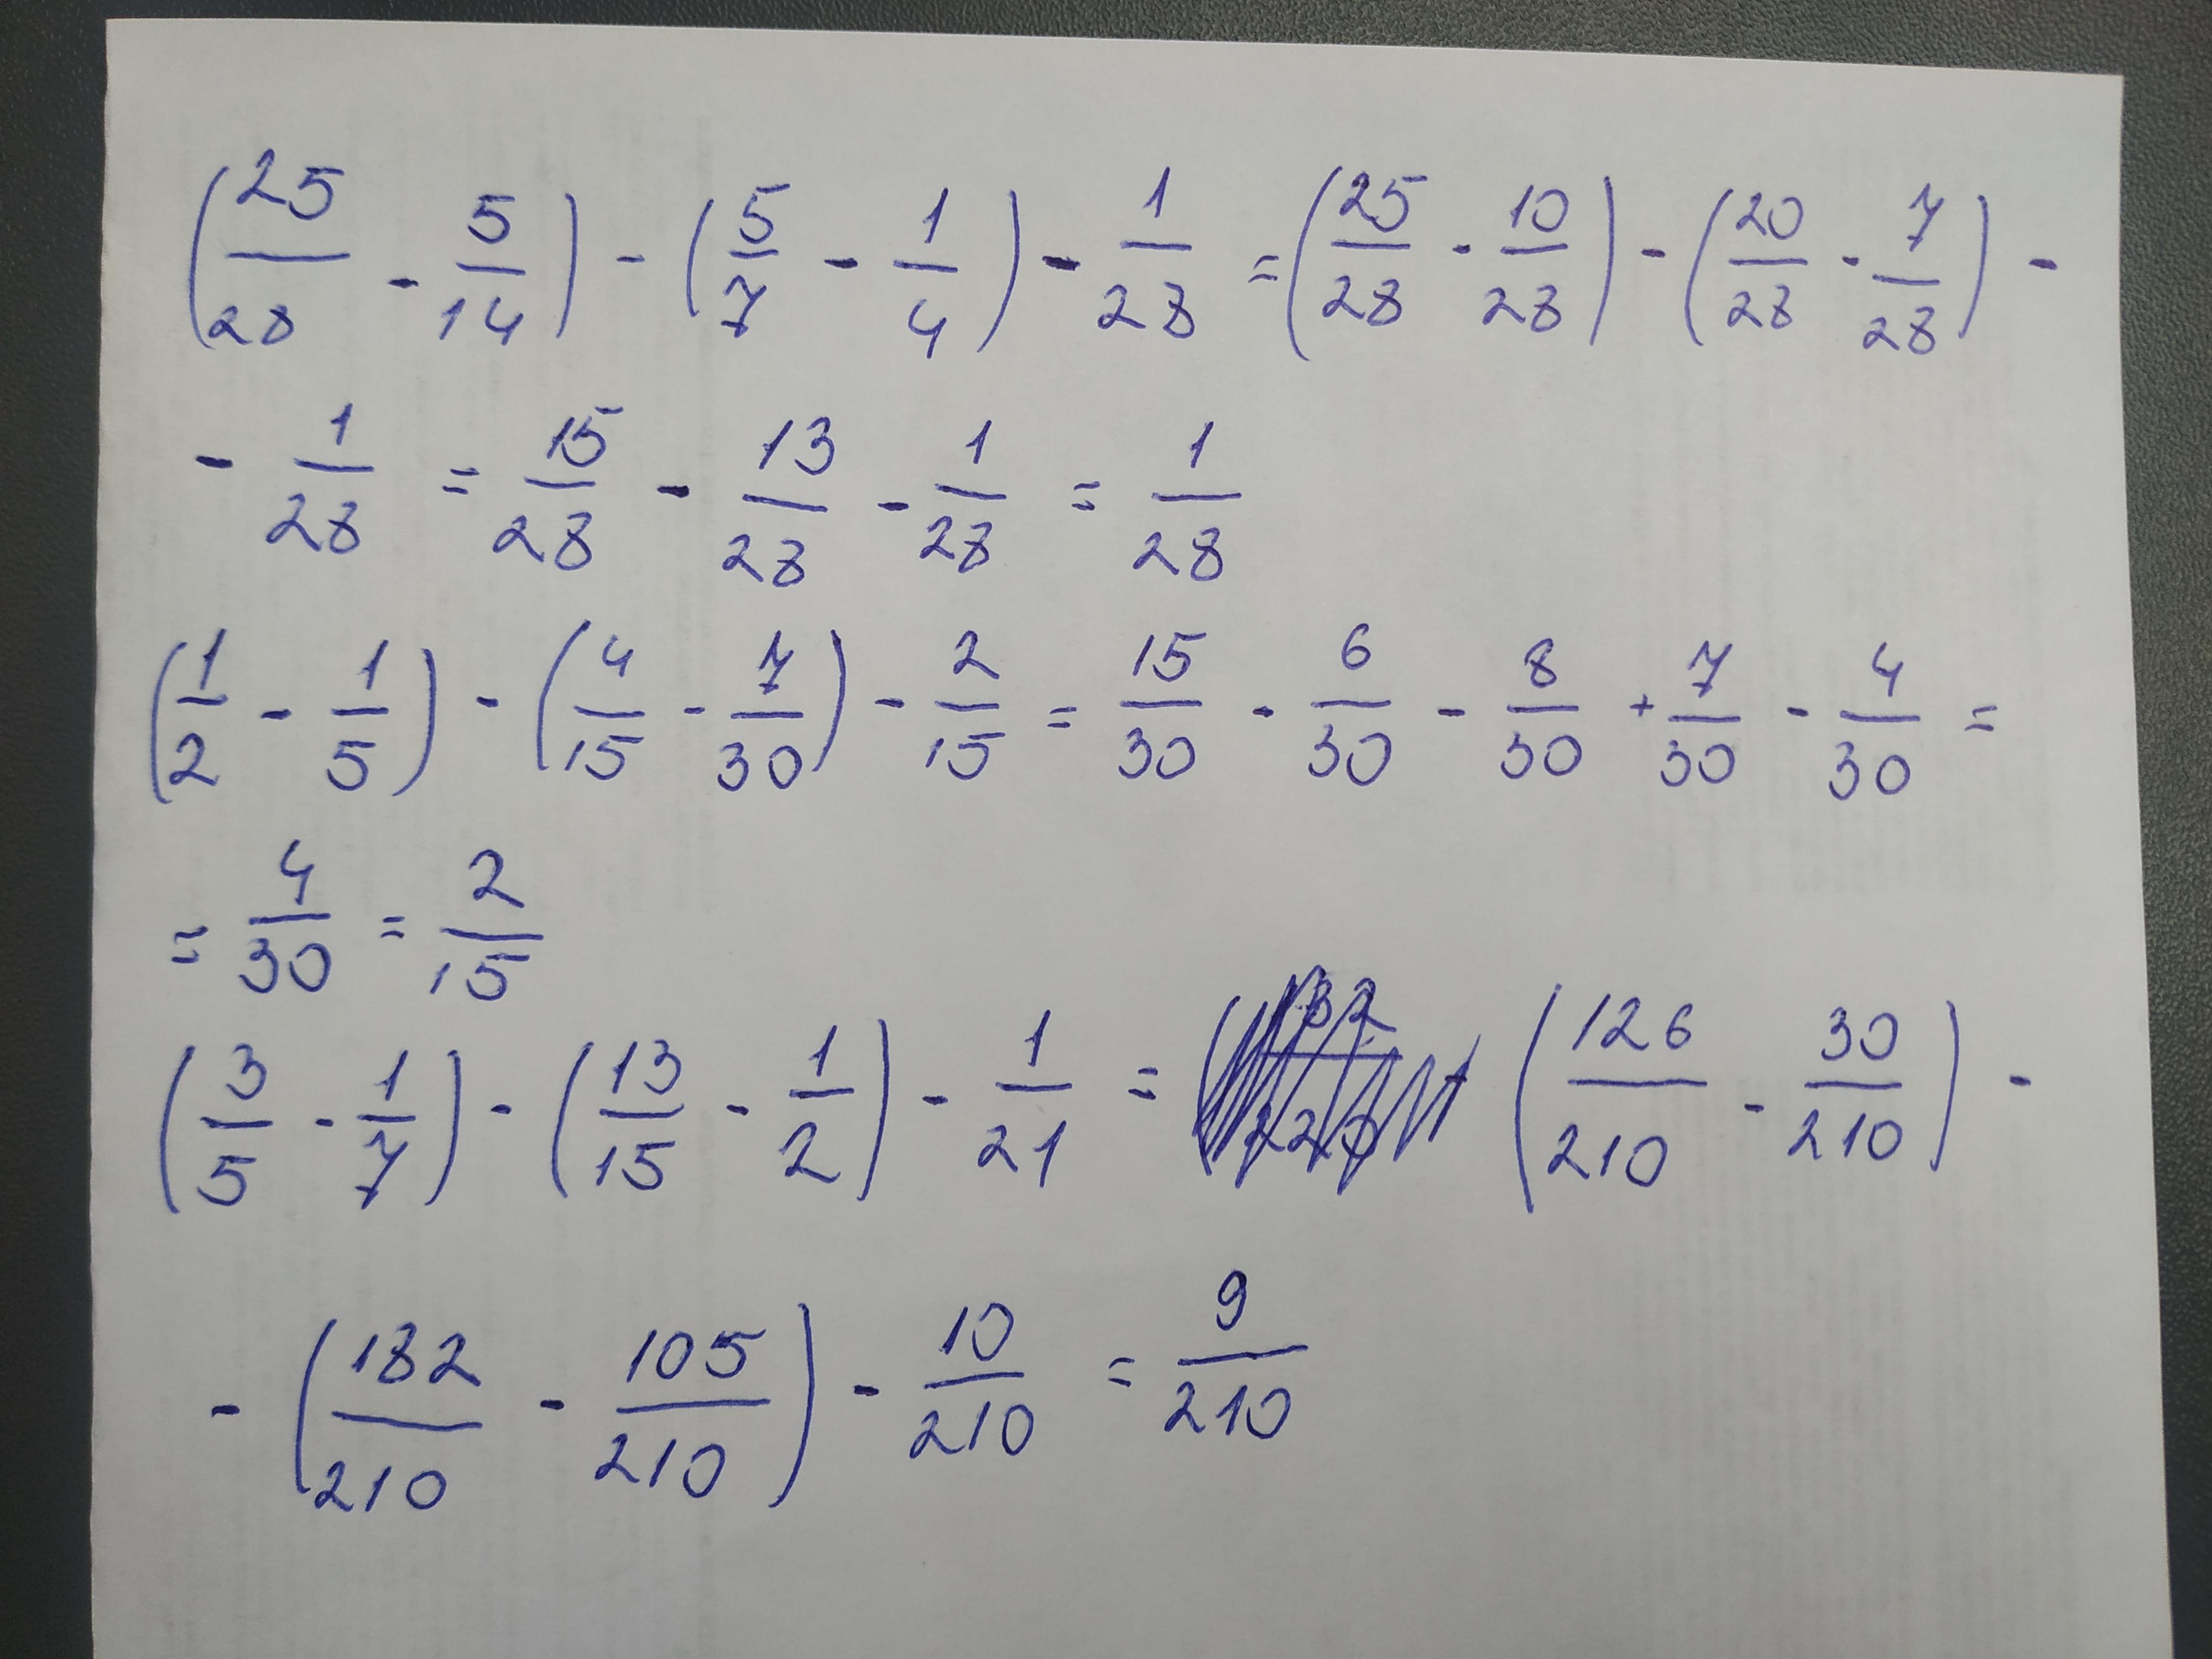 (25/28 - 5/14) - (5/7 - 1/4) - 1/28 = (25/28 - 10/28) - (20/28 - 7/28) -
- 1/28 = 15/28 - 13/28 - 1/28 = 1/28
(1/2 - 1/5) - (4/15 - 7/30) - 2/15 = 15/30 - 6/30 - 8/30 + 7/30 - 4/30 =
= 4/30 = 2/15
(3/5 - 1/7) - (13/15 - 1/2) - 1/21 = (126/210 - 30/210) -
- (182/210 - 105/210) - 10/210 = 9/210